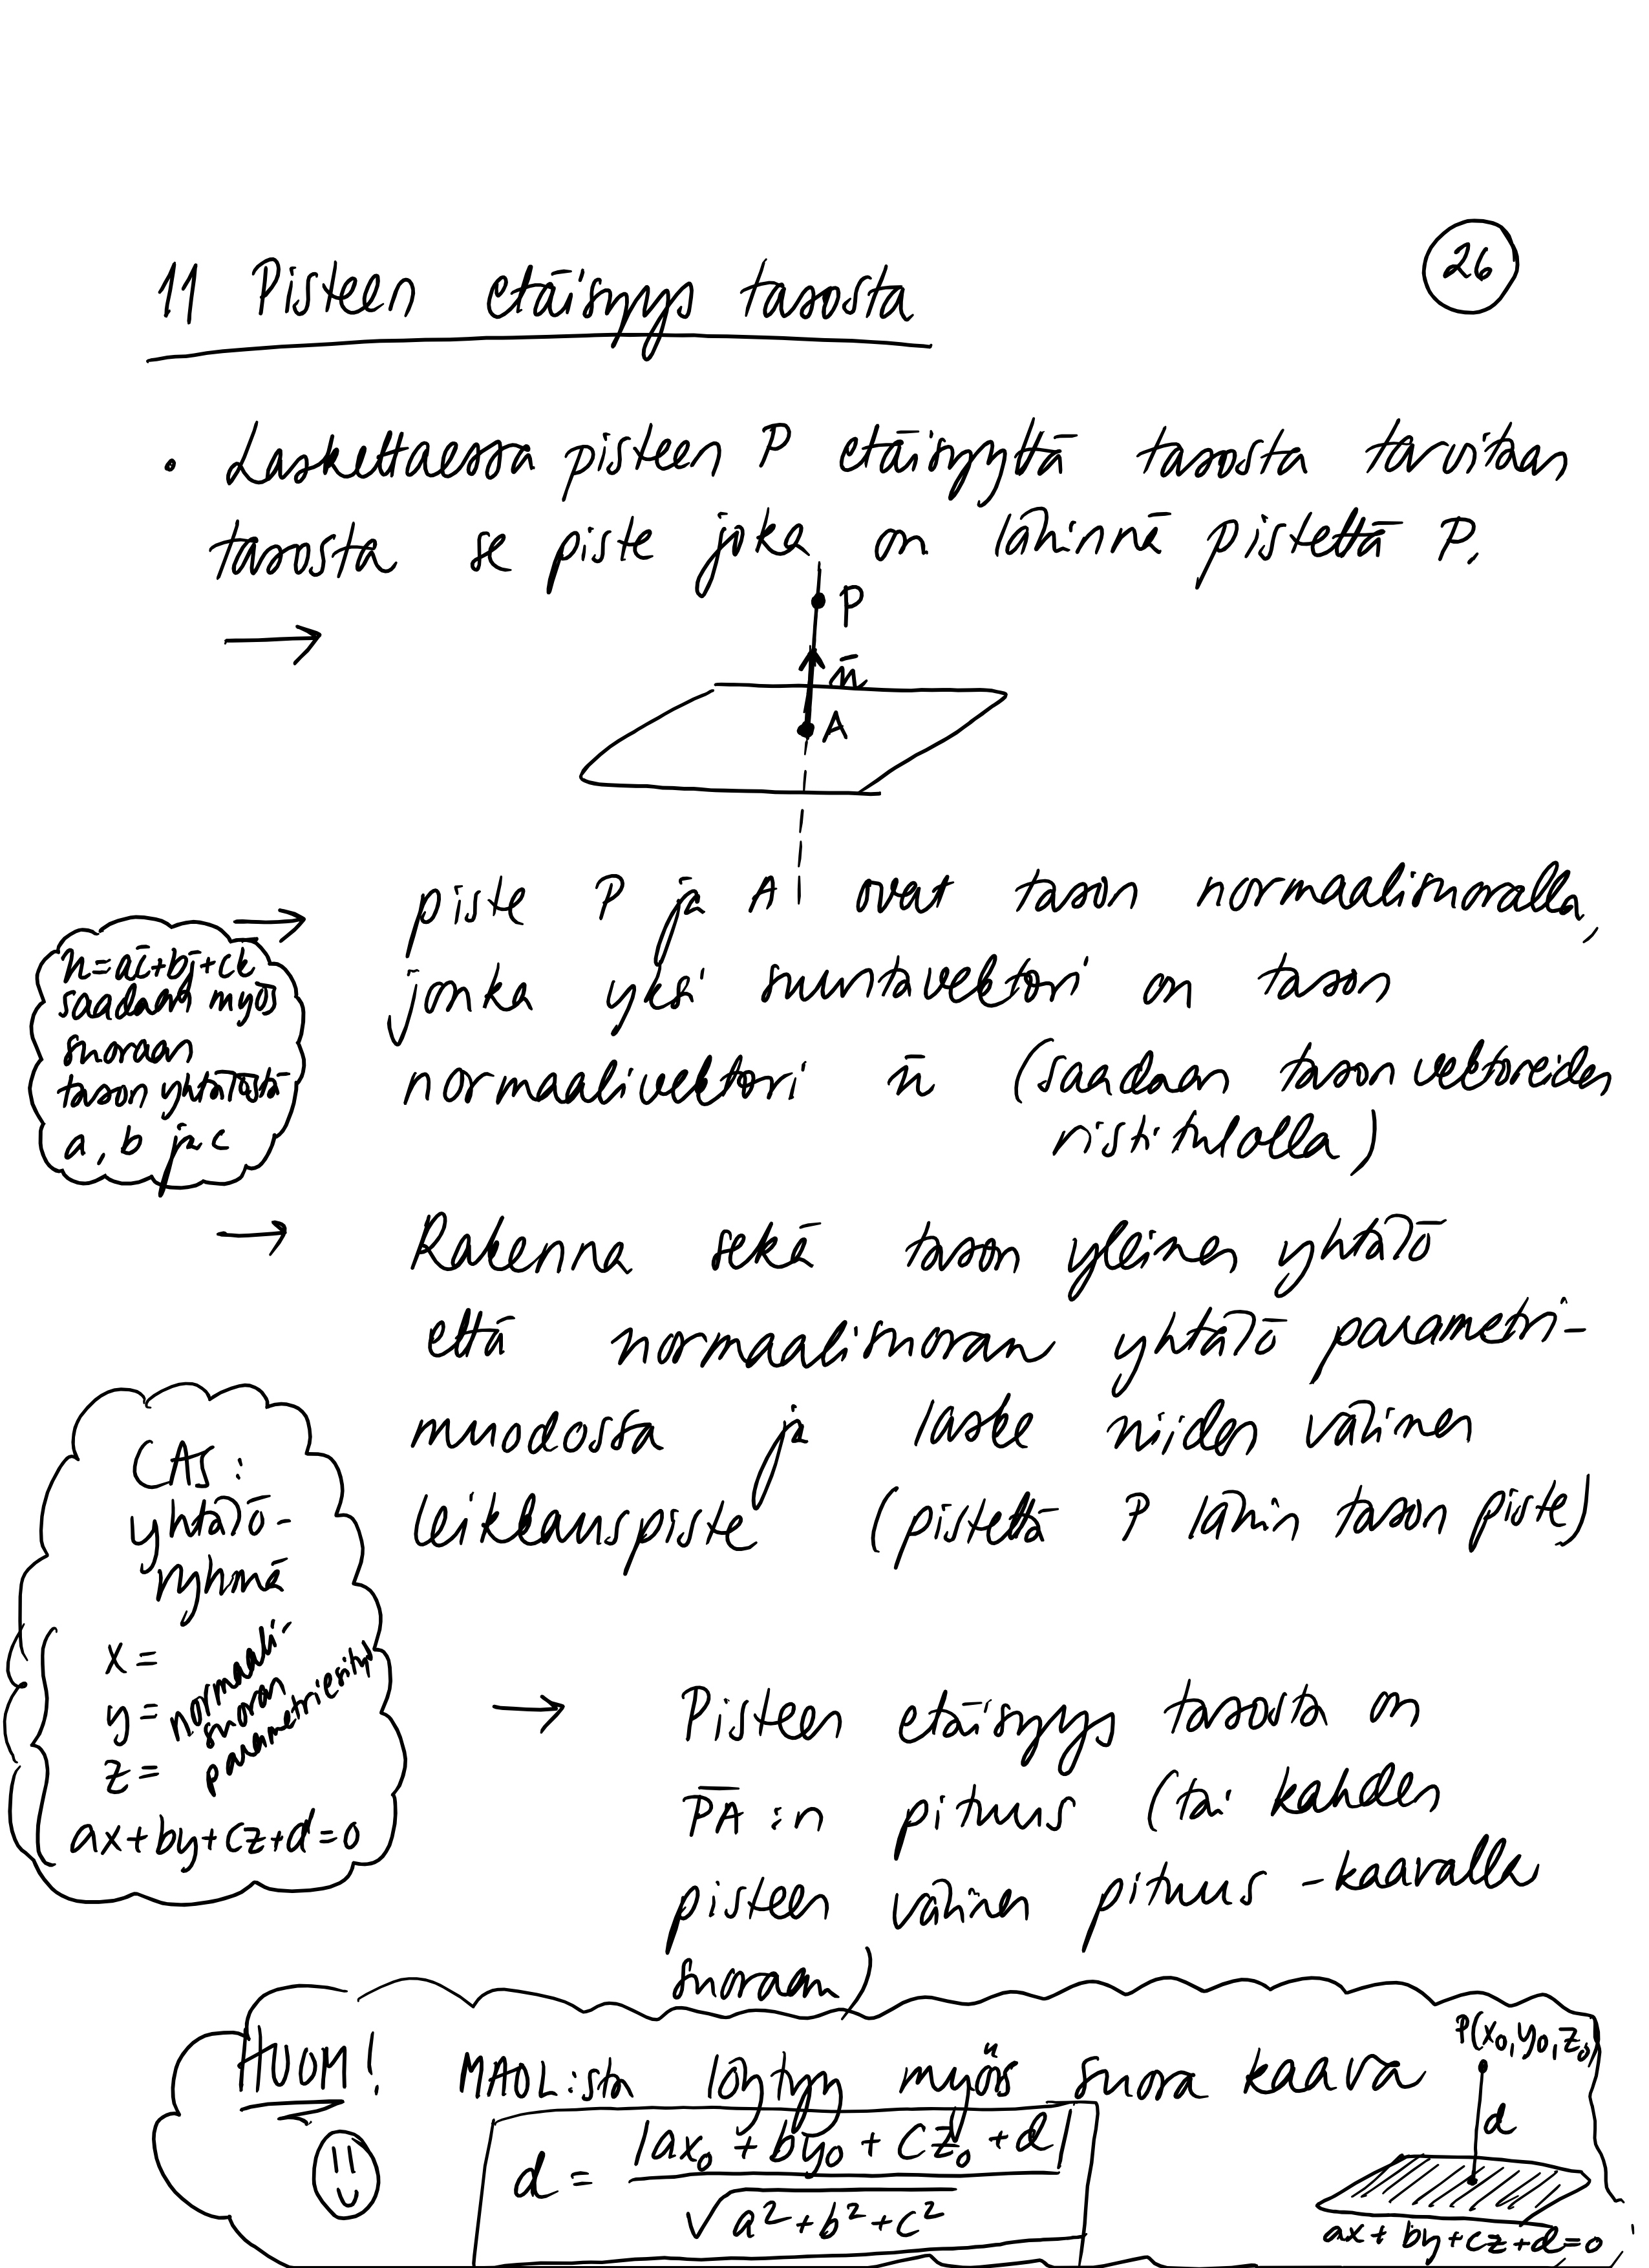 26
11 Pisteen etäisyys tasosta
• Laskettaessa pisteen P etäisyyttä tasosta tarvitaan
tasosta se piste joka on lähinnä pistettä P.
→
P
n̄
A
→ piste P ja A ovat tason normaalisuoralla,
jonka yksi suuntavektori on tason
normaalivektori n̄ (saadaan tason vektoreiden
ristitulolla)
n̄=aī+bj̄+ck̄
saadaan myös
suoraan
tason yhtälöstä
a, b ja c
→ Rakenna sekä tason yleinen yhtälö
että normaalisuoran yhtälö parametri-
muodossa ja laske niiden välinen
leikkauspiste (pistettä P lähin tason piste)
CAS:
yhtälö-
ryhmä
x =
y =
z =
normaali-
suoran
parametriesitys
ax+by+cz+d=0
→ Pisteen etäisyys tasosta on
P̄Ā:n pituus (tai kahden
pisteen välinen pituus -kaavalla
suoraan)
HUOM! MAOL:sta löytyy myös suora kaava
d = |ax₀ + by₀ + cz₀ + d| / √a²+b²+c²
P(x₀,y₀,z₀)
d
ax+by+cz+d=0